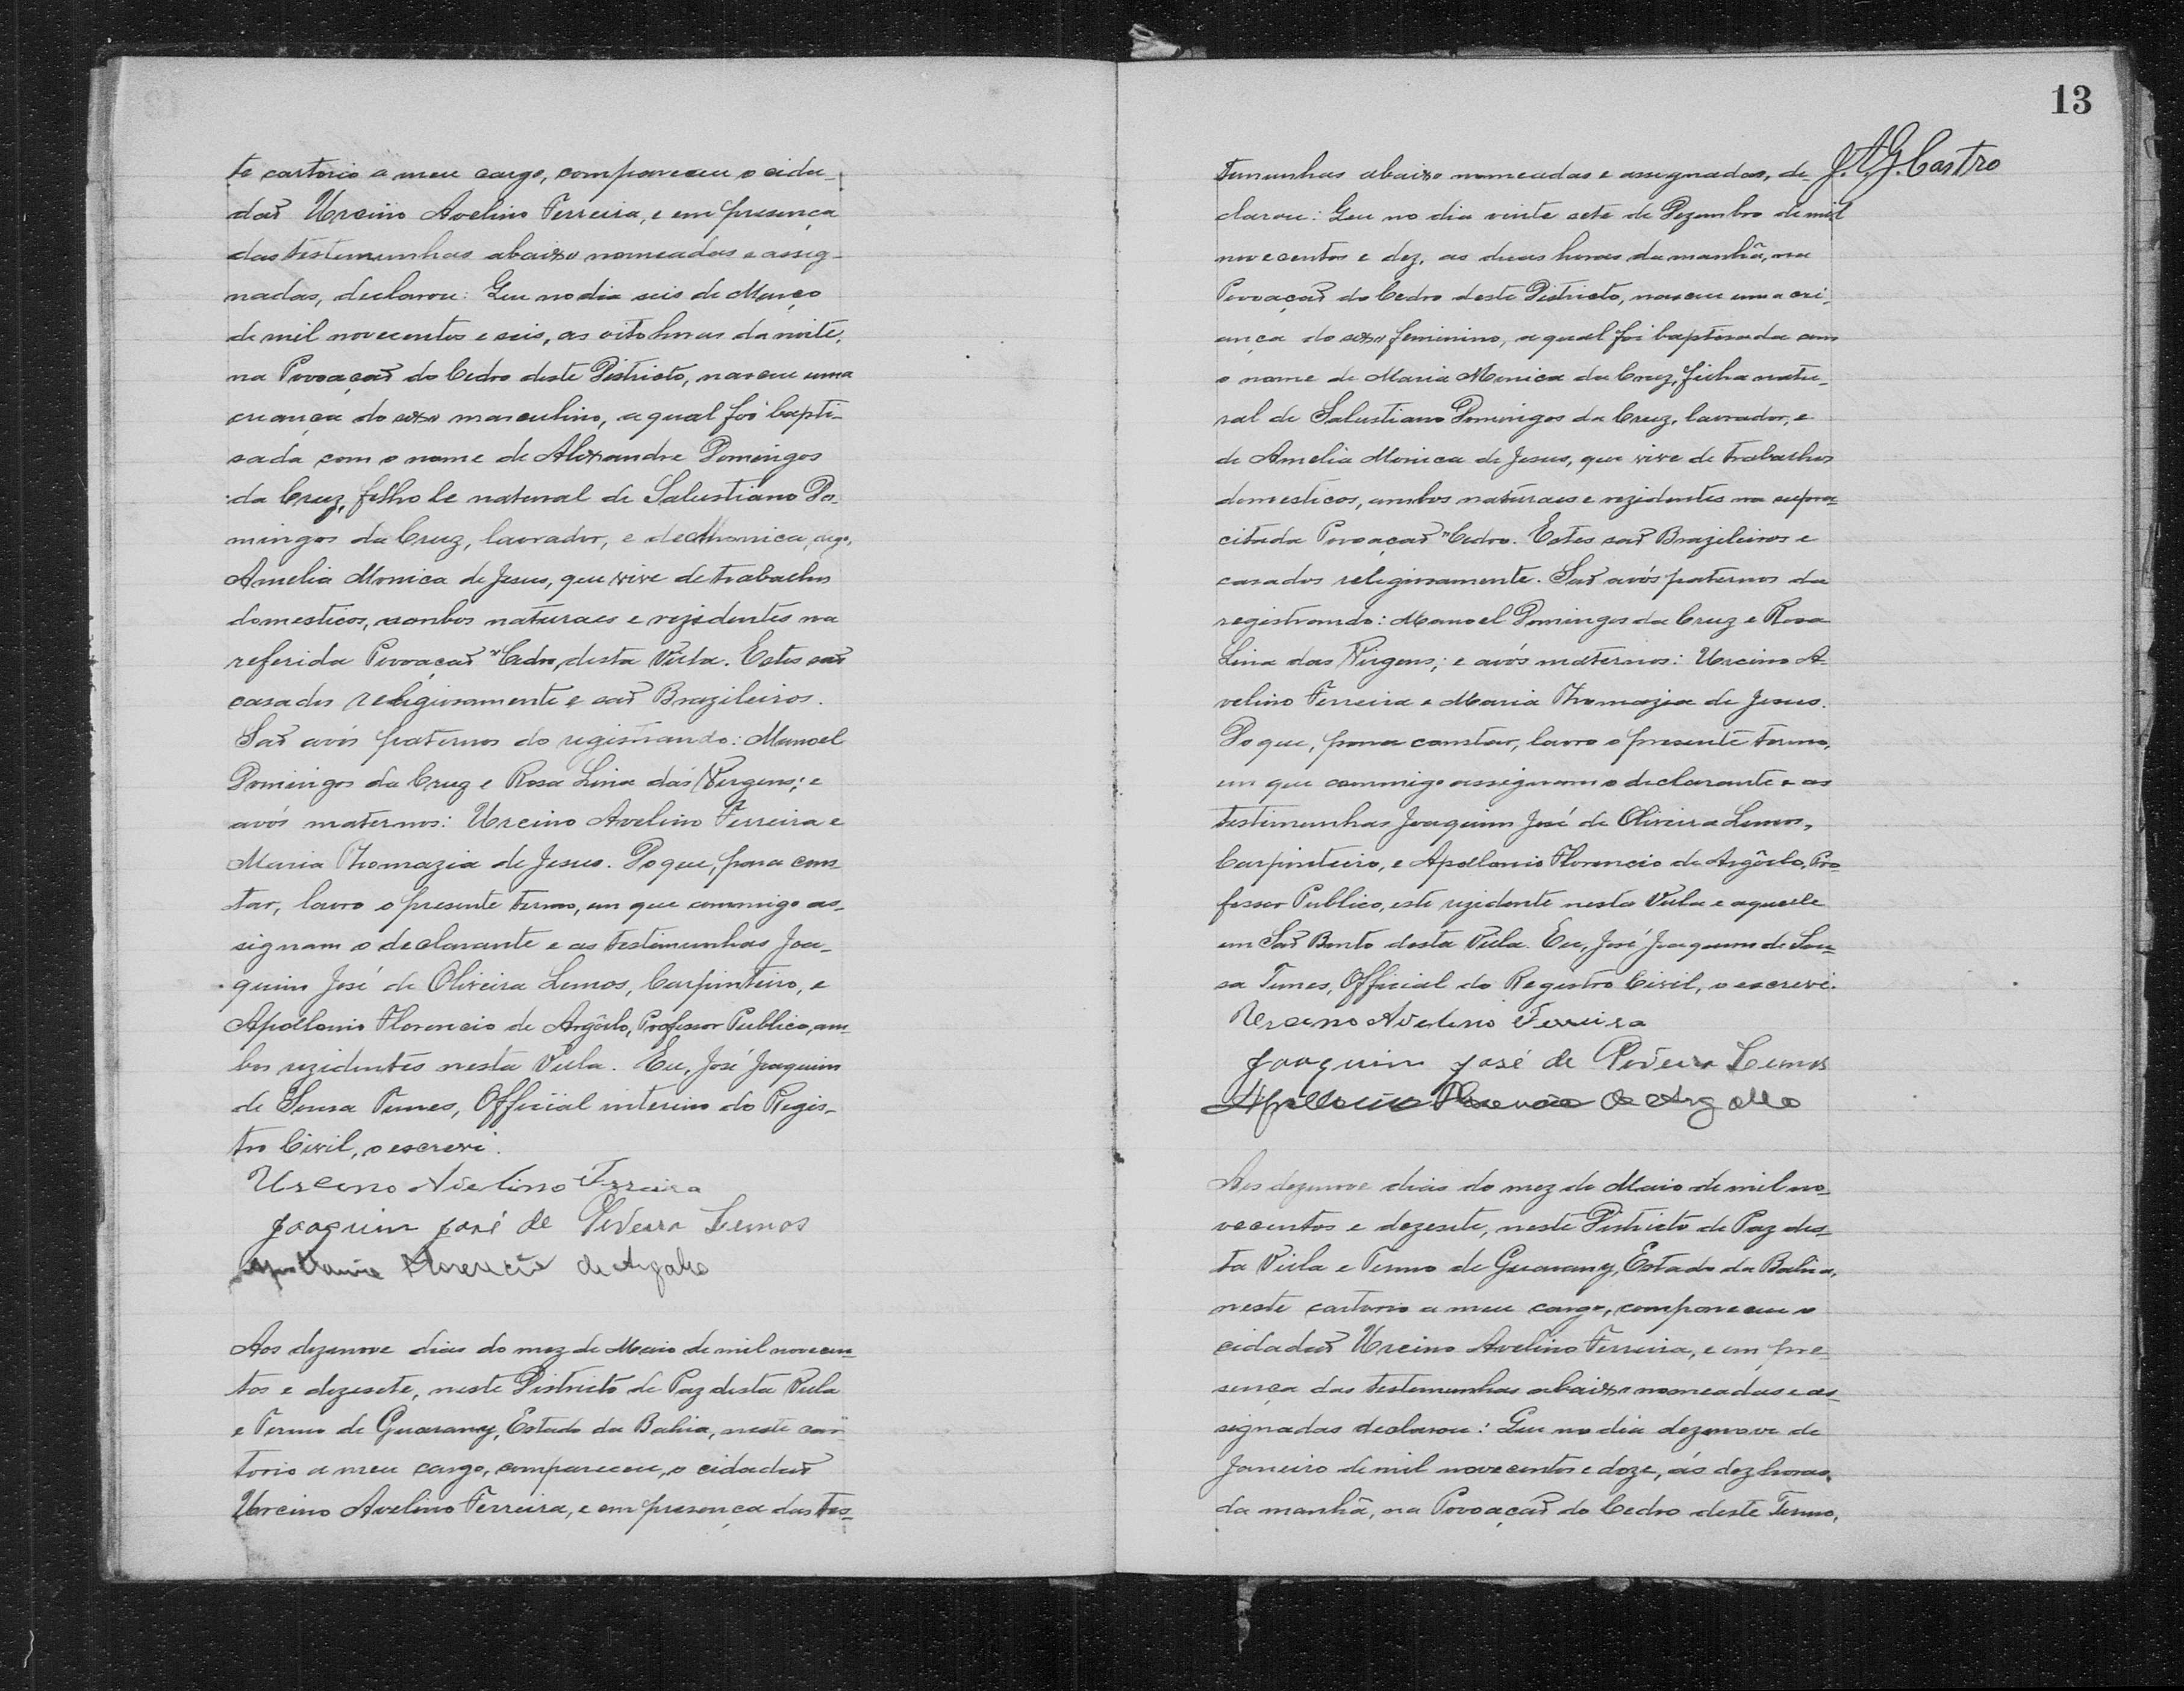 te cartorio a meu cargo, compareceu o cida-
dão Urcino Avelino Ferreira, e em presença
das testemunhas abaixo nomeadas e assig-
nadas, declarou: Que no dia seis de Março
de mil novecentos e seis, as oito horas da noite,
na Povoação do Cedro deste Districto, nasceu uma
criança do sexo masculino, a qual foi bapti-
sada com o nome de Alexandre Domingos
da Cruz, filho le natural de Salustiano Do-
mingos da Cruz, lavrador, e de Monica, digo,
Amelia Monica de Jesus, que vive de trabalhos
domesticos, ambos naturaes e rezidentes na
referida Povoação Cedro, desta Villa. Estes são
casados religiosamente e são Brazileiros.
São avós paternos do registrando: Manoel
Domingos da Cruz e Rosa Lina das Virgens; e
avós maternos: Urcino Avelino Ferreira e
Maria Thomazia de Jesus. Do que, para cons-
tar, lavro o presente termo, em que commigo as-
signam o declarante e as testemunhas Joa-
quim José de Oliveira Lemos, Carpinteiro, e
Apollonio Florencio de Argôllo, Professor Publico, am-
bos rezidentes nesta Villa. Eu, José Joaquim
de Sousa Tunes, Official interino do Regis-
tro Civil, o escrevi.
Urcino Avelino Ferreira
Joaquim José de Oliveira Lemos
Apollonio Florencio de Argollo
Aos dezenove dias do mez de Maio de mil novecen-
tos e dezesete, neste Districto de Paz desta Villa
e Termo de Guarany, Estado da Bahia, neste car-
torio a meu cargo, compareceu, o cidadão
Urcino Avelino Ferreira, e em presença das tes-
13
J. A. G. Castro
temunhas abaixo nomeadas e assignadas, de
clarou: Que no dia vinte sete de Dezembro de mil
novecentos e dez, as duas horas da manhã, na
Povoação do Cedro deste Districto, nasceu uma cri-
ança do sexo feminino, a qual foi baptisada com
o nome de Maria Monica da Cruz, filha natu-
ral de Salustiano Domingos da Cruz, lavrador, e
de Amelia Monica de Jesus, que vive de trabalhos
domesticos, ambos naturaes e rezidentes na supra-
citada Povoação Cedro. Estes são Brazileiros e
casados religiosamente. São avós paternos da
registrando: Manoel Domingos da Cruz e Rosa
Lina das Virgens; e avós maternos: Urcino A-
velino Ferreira e Maria Thomazia de Jesus.
Do que, para constar, lavro o presente termo,
em que commigo assignam o declarante e as
testimunhas Joaquim José de Oliveira Lemos,
Carpinteiro, e Apollonio Florencio de Argôllo, Pro-
fessor Publico, este rezidente nesta Villa e aquelle
em São Bento desta Villa. Eu, José Joaquim de Sou-
sa Tunes, Official do Registro Civil, o escrevi.
Urcino Avelino Ferreira
Joaquim José de Oliveira Lemos
Apollonio Florencio de Argollo
Aos dezenove dias do mez de Maio de mil no-
vecentos e dezesete, neste Districto de Paz des-
ta Villa e Termo de Guarany, Estado da Bahia,
neste cartorio a meu cargo, compareceu o
cidadão Urcino Avelino Ferreira, e em pre-
sença das testemunhas abaixo nomeadas e as-
signadas declarou: Que no dia dezenove de
Janeiro de mil novecentos e doze, ás dez horas,
da manhã, na Povoação do Cedro deste Termo,